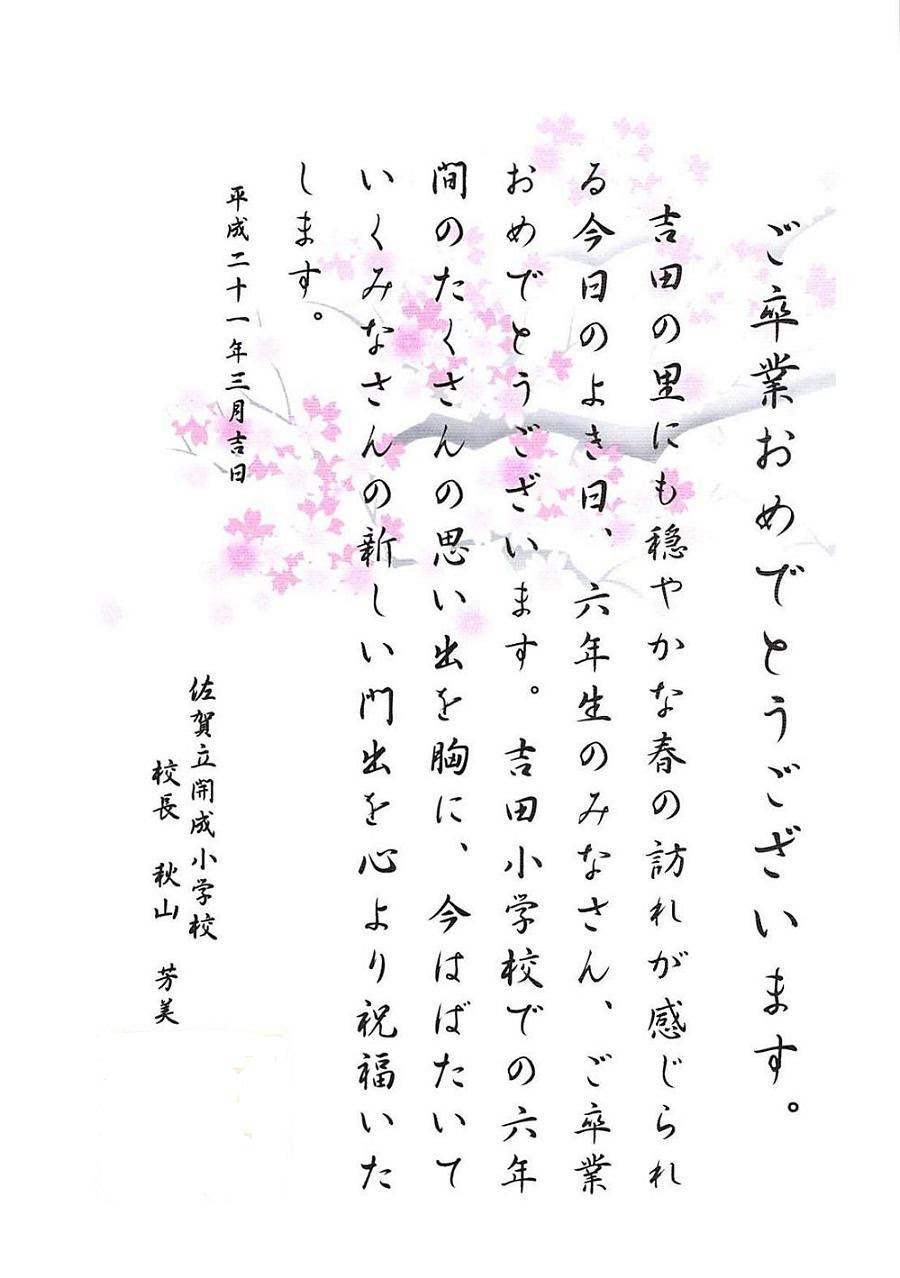 ご卒業おめでとうございます。
吉田の里にも穏やかな春の訪れが感じられ
る今日のよき日、六年生のみなさん、ご卒業
おめでとうございます。吉田小学校での六年
間のたくさんの思い出を胸に、今はばたいて
いくみなさんの新しい門出を心より祝福いた
します。
平成二十一年三月吉日
佐賀立開成小学校
校長 秋山 芳美